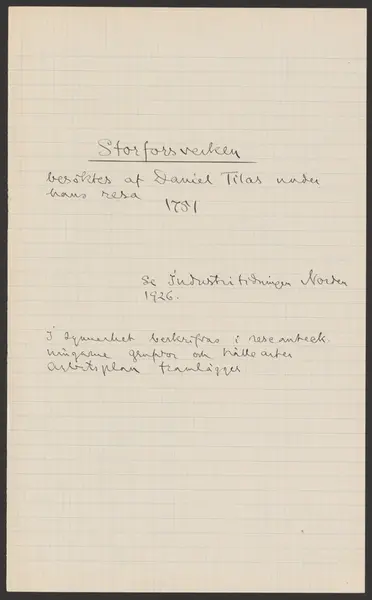 Storforsverken
besöktes af Daniel Tilas under
hans resa
1751
Se Industritidningen Norden
1926.
I synnerhet beskrifvas i reseanteck-
ningarne gruvor och hällearter
Arbetsplan framlägges